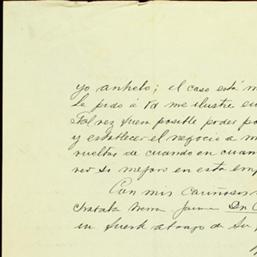 yo anhelo; el caso está m
Le pido á Vd me ilustre en
Tal vez fuera posible poder po
y establecer el negocio a m
vueltas de cuando en cuan
ver si mejoro en esta emp
Con mis cariñosos
Jaime Dn
un fuerte abrazo de su